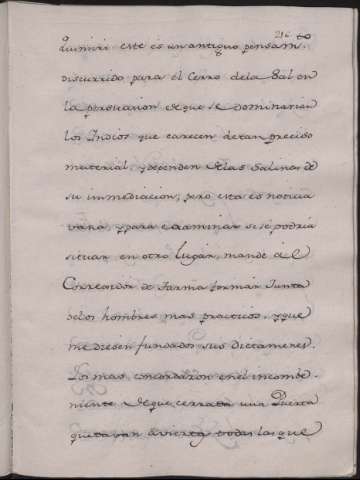 216
Quimiri este es un antiguo pensam.to
discurrido para el Cerro dela Sal en
la persuacion de que se dominarian
los Indios que carecen de tan preciso
material, y dependen delas Salinas de
su inmediacion; pero esta es noticia
vana, y para examinar si se podria
situar en otro lugar, mandè al
Corregidor de Tarma formar Junta
delos hombres mas practicos, y que
me diesen fundados sus dictamenes.
Los mas concordaron en el incombe-
niente de que cerrada una Puerta
quedavan avierta todas las que